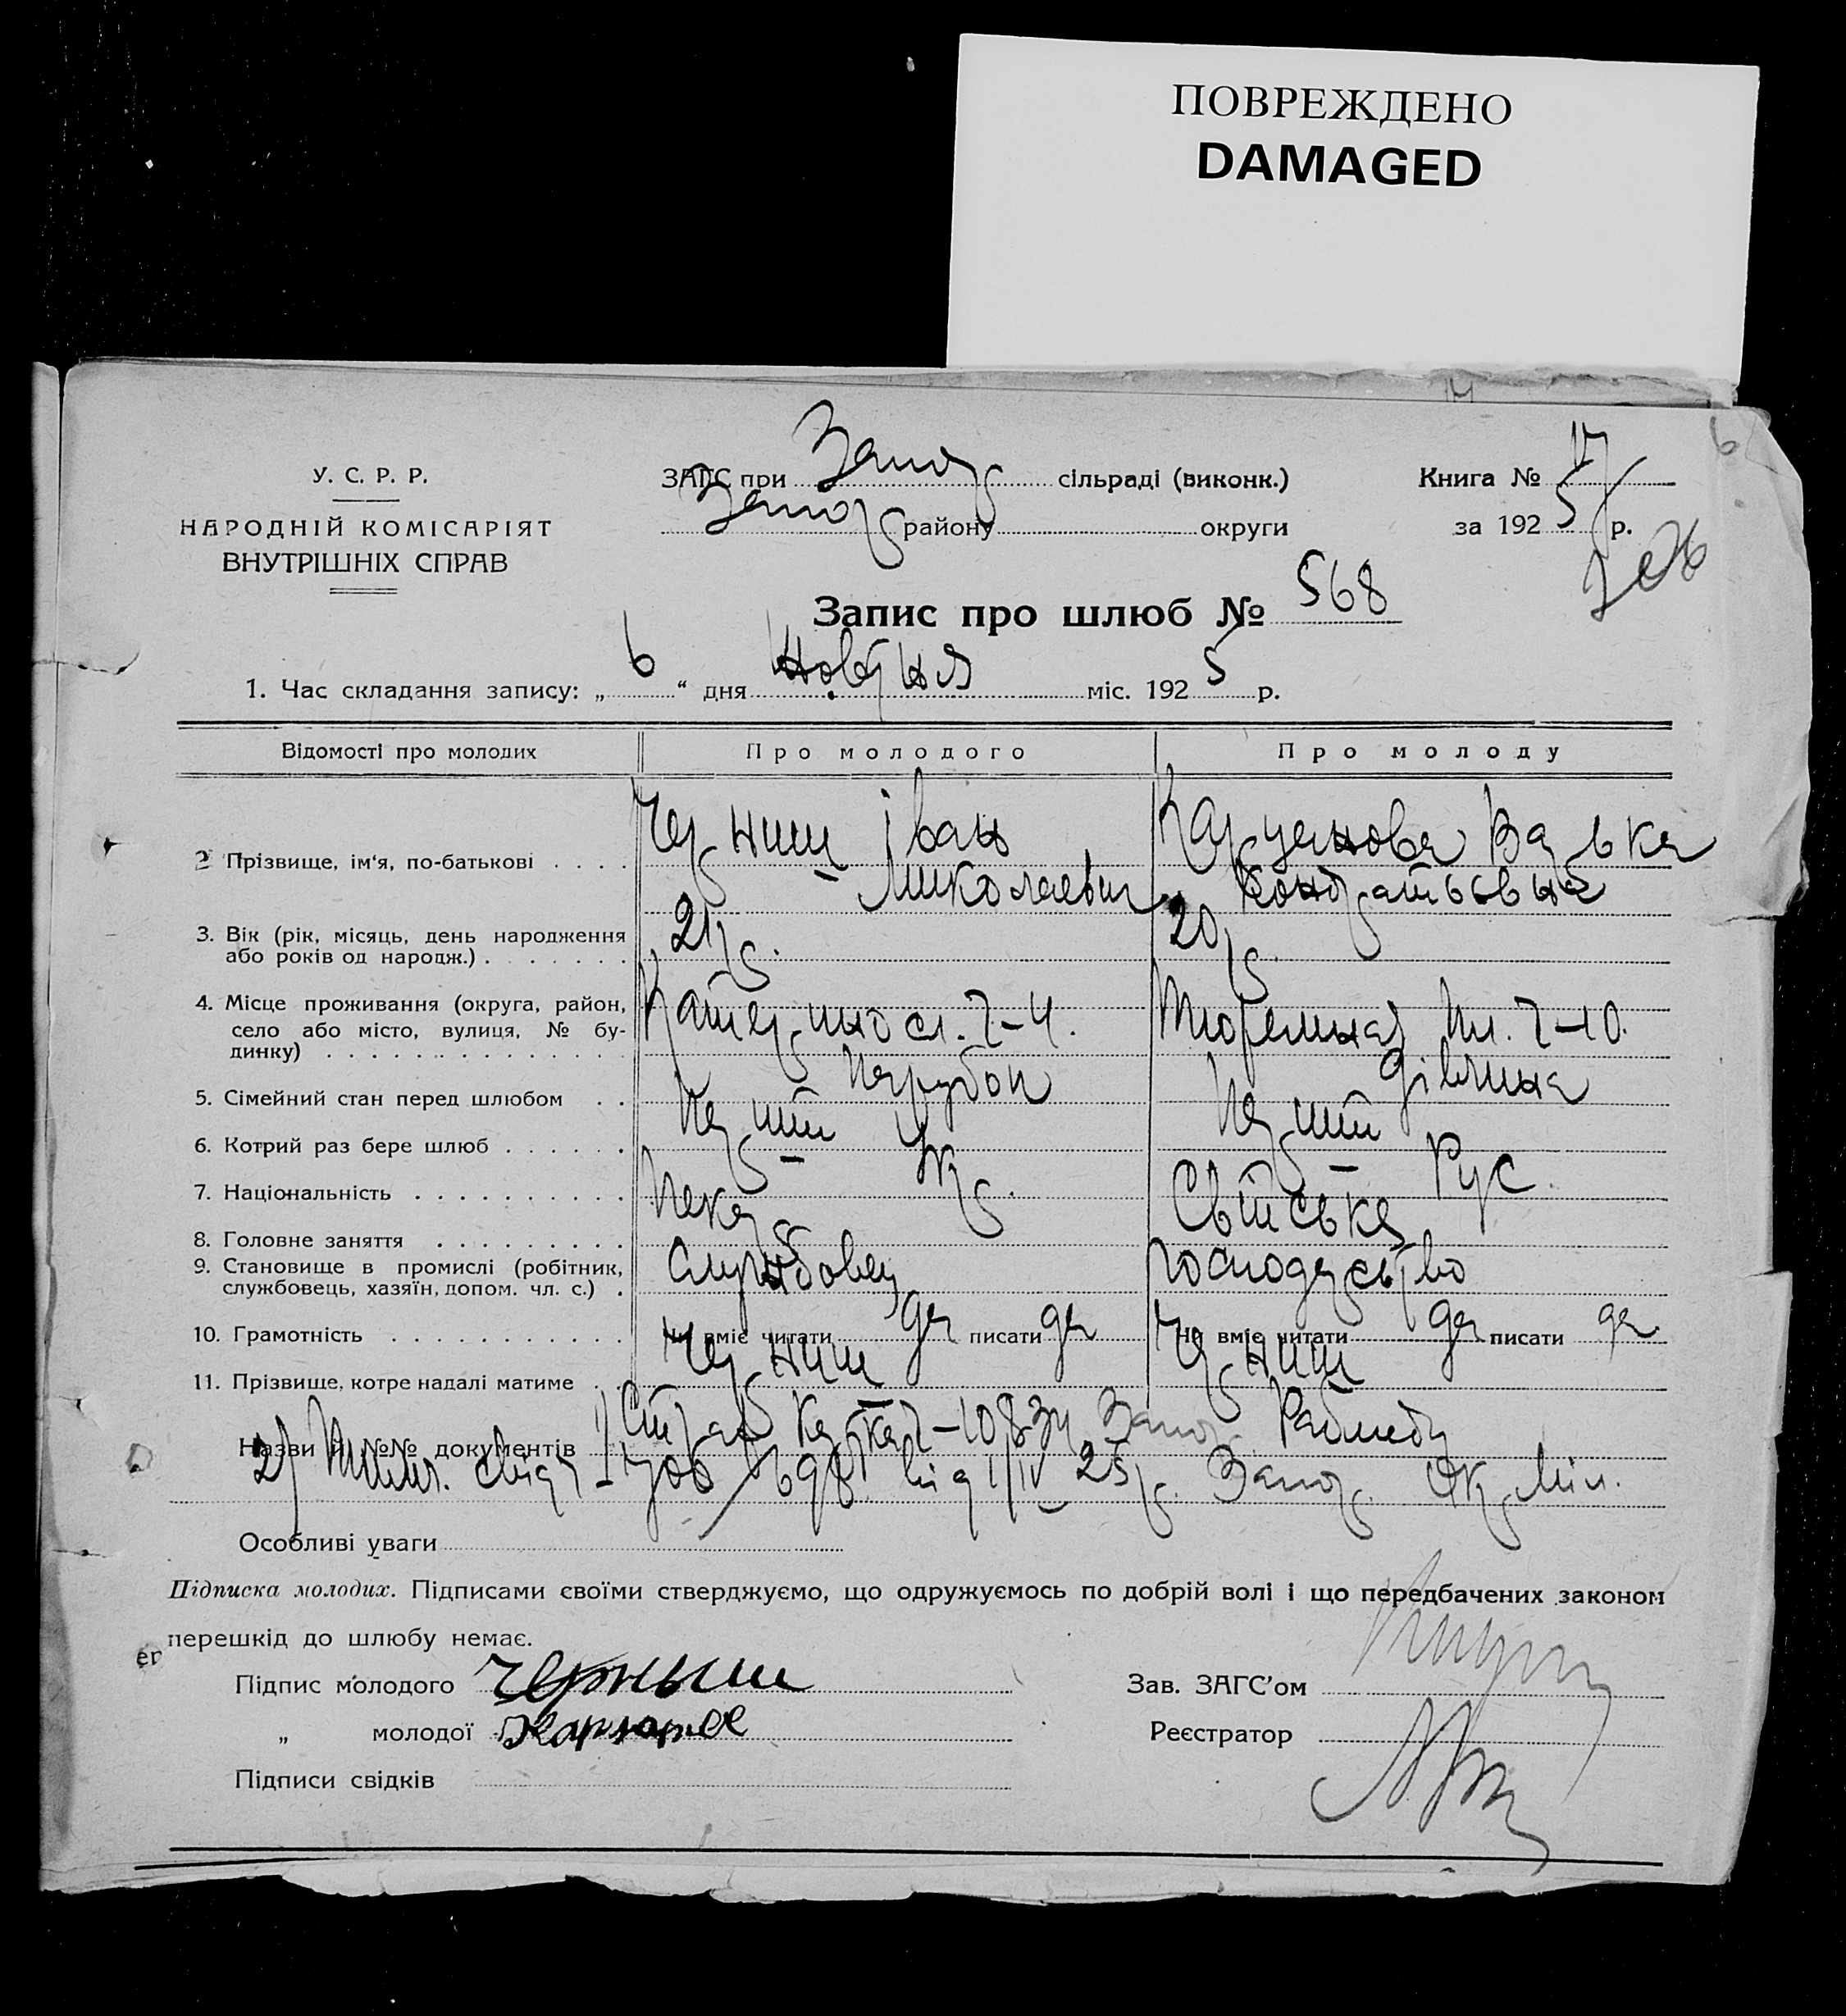 ПОВРЕЖДЕНО
DAMAGED
У. С. Р. Р.
НАРОДНІЙ КОМІСАРІЯТ
ВНУТРІШНІХ СПРАВ
ЗАГС при Запор сільраді (виконк.)
Запор району округи
Книга № 17
за 1925 р.
6
Запис про шлюб № 568
1. Час складання запису: „ 6 “ дня Новтрня міс. 1925 р.
Відомості про молодих Про молодого Про молоду
2 Прізвище, ім'я, по-батькові . . . . Черниш Іван Миколаевич
Кондратьевна
3. Вік (рік, місяць, день народження або років од народж.) . . . . . . . 21 р. 20 р.
4. Місце проживання (округа, район, село або місто, вулиця, № будинку) . . . . . . . . . . . . . . . . Катериносл. 7-4. Тюремная пл. 7-10.
5. Сімейний стан перед шлюбом . . Парубок Дівчина
6. Котрий раз бере шлюб . . . . . . Перший Перший
7. Національність . . . . . . . . . . . Укр. Рус.
8. Головне заняття . . . . . . . . . Пекар Свійське
9. Становище в промислі (робітник, службовець, хазяїн, допом. чл. с.) . Службовец господарсьтво
10. Грамотність . . . . . . . . . . . . Чи вміє читати да писати да Чи вміє читати да писати да
11. Прізвище, котре надалі матиме . Черниш Черниш
Назви й №№ документів 1) Страх Картка 7-10834 Запор.
2) 706/698 від 1/IV 25 р. Запор. Окр Міл.
Особливі уваги
Підписка молодих. Підписами своїми стверджуємо, що одружуємось по добрій волі і що передбачених законом
перешкід до шлюбу немає.
Підпис молодого Черныш
Зав. ЗАГС'ом
„ молодої
Реєстратор
Підписи свідків